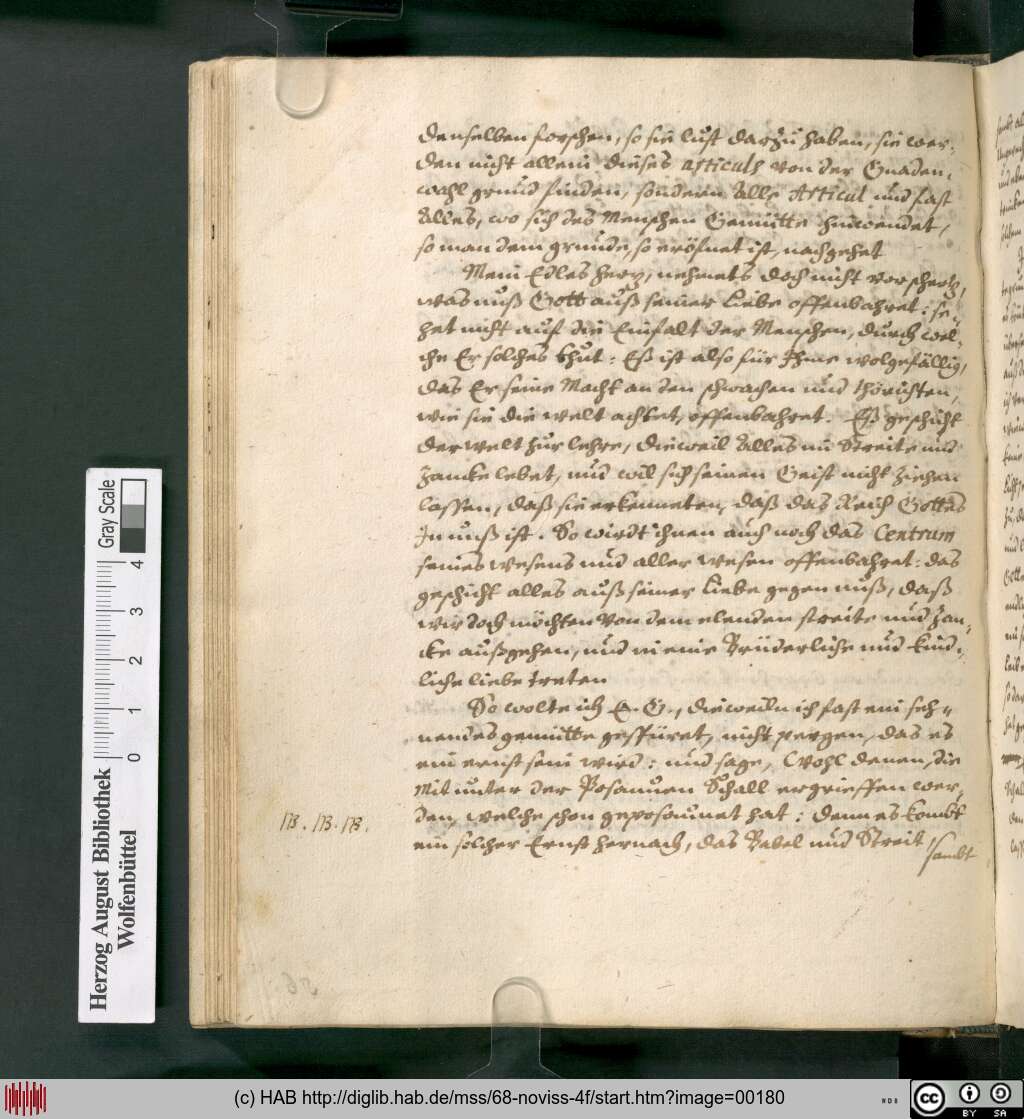 denselben forschen, so sie lust darzu haben, sie wer-
den nicht allein dieses articuls von der Gnaden,
wahl grund finden, sondern alle Articul und fast
alles, wo sich des Menschen Gemütte hinwendet,
so man dem grunde, so eröfnet ist, nachgehet
Mein Edles hertz, nehmets doch nicht vor schertz,
was unß Gott auß seiner Liebe offenbahret: se-
het nicht auf die Einfalt der Menschen, durch wel-
che Er solches thut: Eß ist also für Ihme wolgefällig,
das Er seine Macht an den schwachen und thörichten,
wie sie die welt achtet, offenbahret. Eß geschicht
der welt zur lehre, dieweil alles im Streite und
zancke lebet, und wil sich seinen Geist nicht ziehen
lassen, daß sie erkenneten, daß das Reich Gottes
In unß ist. So wirdt ihnen auch noch das Centrum
seines wesens und aller wesen offenbahret: das
geschicht alles auß seiner Liebe gegen unß, daß
wir doch möchten von dem elenden streite und zan-
cke außgehen, und in eine Brüderliche und kind-
liche liebe treten
So wolte ich E. G., dieweiln ich fast ein seh-
nendes gemütte gespüret, nicht pergen, das es
ein ernst sein wird: und sage, Wohl denen, die
Mit unter der Posaunen Schall ergrieffen wer-
den, welche schon geposaunet hat: denn es kombt
ein solcher Ernst hernach, das Babel und Streit,
sambt
NB. NB. NB.
Herzog August Bibliothek
Wolfenbüttel
0 1 2 3 4
Gray Scale
(c) HAB http://diglib.hab.de/mss/68-noviss-4f/start.htm?image=00180
WDB
cc
BY SA